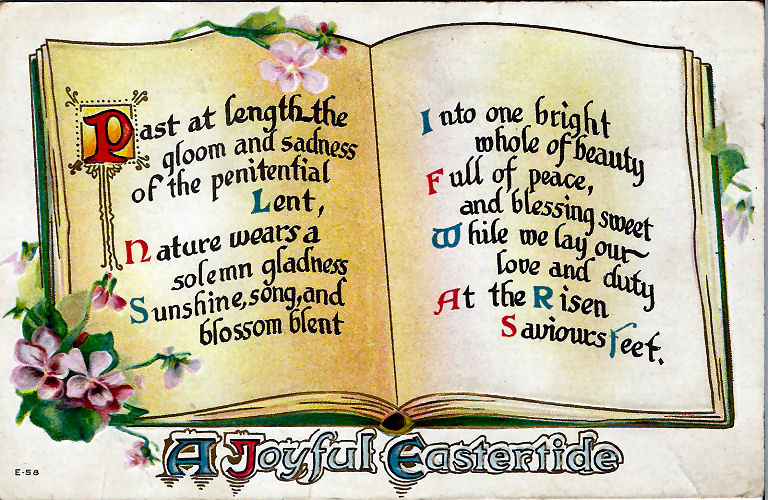 Past at length the
gloom and sadness
of the penitential
Lent,
Nature wears a
solemn gladness
Sunshine, song, and
blossom blent
Into one bright
whole of beauty
Full of peace,
and blessing sweet
While we lay our
love and duty
At the Risen
Saviours feet.
A Joyful Eastertide
E-58